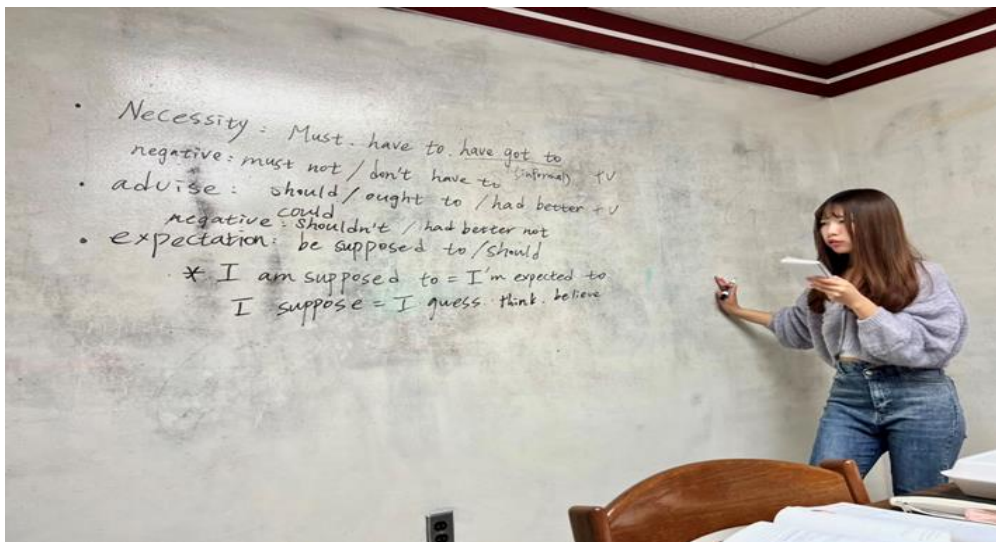 • Necessity : Must. have to. have got to
negative : must not / don't have to (informal) +V
• advise : should / ought to / had better + V
could
negative : shouldn't / had better not
• expectation : be supposed to / should
* I am supposed to = I'm expected to
I suppose = I guess. think. believe